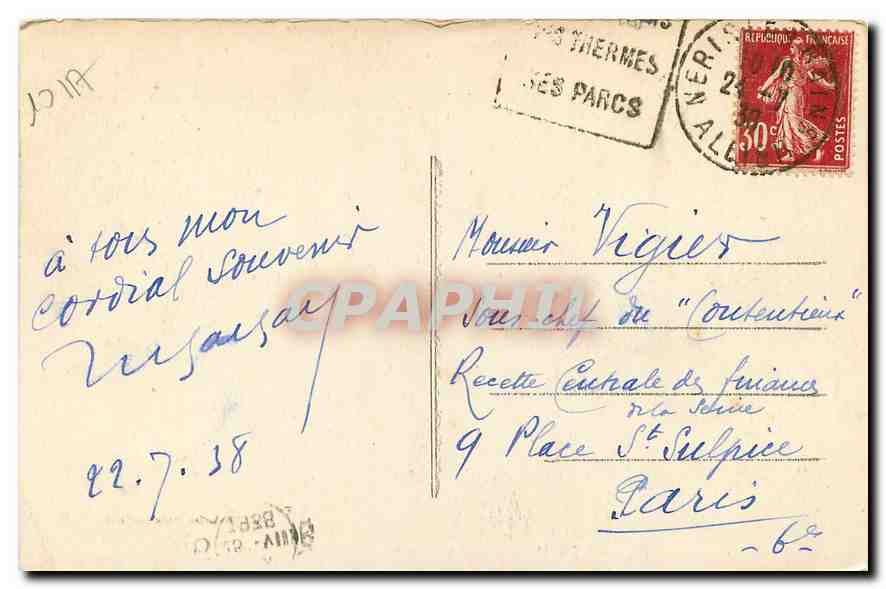 SES THERMES
SES PARCS
NERIS LES BAINS
24 -7
38
ALLIER
REPUBLIQUE FRANÇAISE
30c
POSTES
à tous mon
cordial souvenir
22.7.38
Monsieur Vigier
Sous-chef du "Contentieux"
Recette Centrale des finances
de la Seine
9 Place St Sulpice
Paris
- 6e
CPARAMA